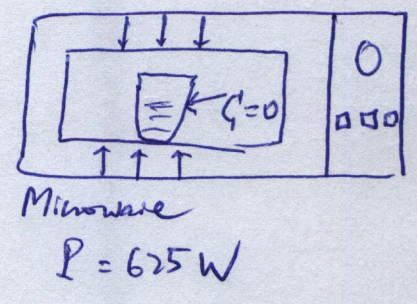 C=0
Microwave
P = 625W